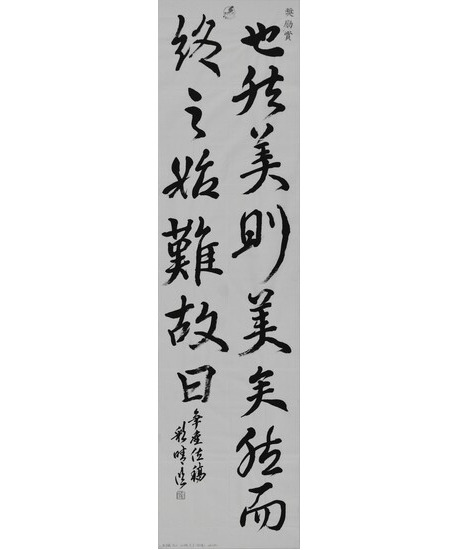 奨励賞
也然美則美矣然而
終之始難故曰
争座位稿
彩晴臨